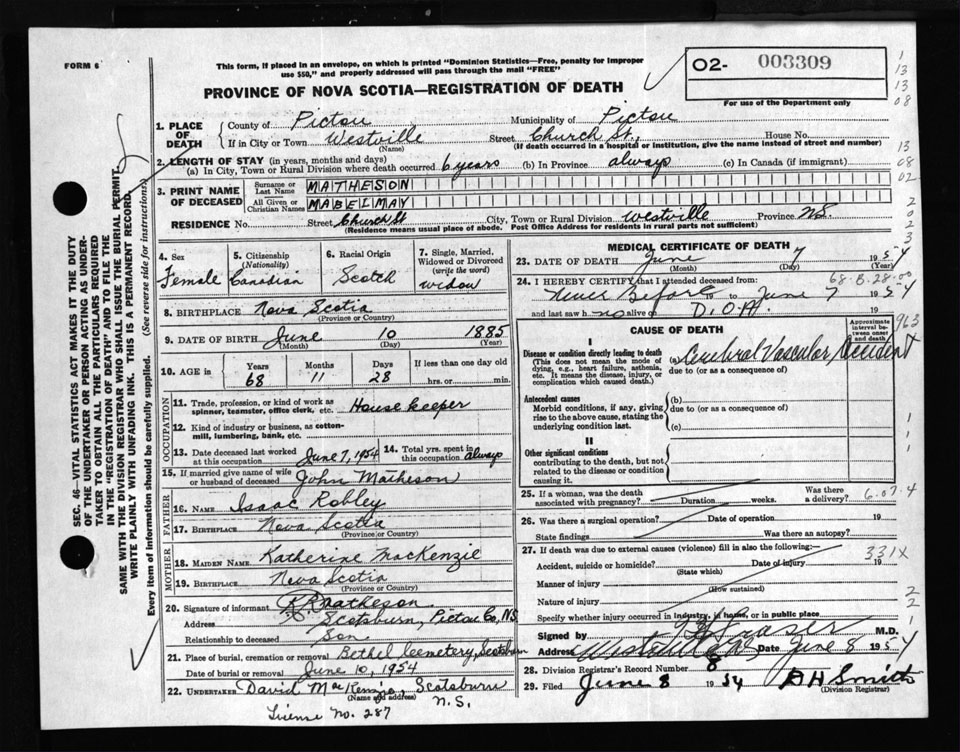 FORM 6
This form, if placed in an envelope, on which is printed "Dominion Statistics—Free, penalty for improper
use $50," and properly addressed will pass through the mail "FREE"
O2- 003309
For use of the Department only
PROVINCE OF NOVA SCOTIA—REGISTRATION OF DEATH
1. PLACE OF DEATH
County of Pictou Municipality of Pictou
If in City or Town Westville Street Church St., House No.
(Name) (If death occurred in a hospital or institution, give the name instead of street and number)
2. LENGTH OF STAY (in years, months and days)
(a) In City, Town or Rural Division where death occurred 6 years (b) In Province always (c) In Canada (if immigrant)
3. PRINT NAME OF DECEASED
Surname or Last Name MATHESON
All Given or Christian Names MABELMAY
RESIDENCE No. Street Church St City, Town or Rural Division Westville Province N.S.
(Residence means usual place of abode. Post Office Address for residents in rural parts not sufficient)
4. Sex Female
5. Citizenship (Nationality) Canadian
6. Racial Origin Scotch
7. Single, Married, Widowed or Divorced (write the word) widow
8. BIRTHPLACE Nova Scotia
(Province or Country)
9. DATE OF BIRTH June 10 1885
(Month) (Day) (Year)
10. AGE in Years 68 Months 11 Days 28 If less than one day old hrs. or min.
OCCUPATION
11. Trade, profession, or kind of work as spinner, teamster, office clerk, etc. House keeper
12. Kind of industry or business, as cotton-mill, lumbering, bank, etc.
13. Date deceased last worked at this occupation June 7, 1954
14. Total yrs. spent in this occupation always
15. If married give name of wife or husband of deceased John Matheson
FATHER
16. NAME Isaac Robley
17. BIRTHPLACE Nova Scotia
(Province or Country)
MOTHER
18. MAIDEN NAME Katherine MacKenzie
19. BIRTHPLACE Nova Scotia
(Province or Country)
20. Signature of informant Matheson
Address Scotsburn, Pictou Co, N.S.
Relationship to deceased Son
21. Place of burial, cremation or removal Bethel Cemetery, Scotsburn
Date of burial or removal June 10, 1954
22. UNDERTAKER David MacKenzie, Scotsburn
(Name and address) N.S.
License No. 287
MEDICAL CERTIFICATE OF DEATH
23. DATE OF DEATH June 7 1954
(Month) (Day) (Year)
68-B-28-00
24. I HEREBY CERTIFY that I attended deceased from:
Never Before 19 to June 7 1954
and last saw h no alive on D.O.A.
CAUSE OF DEATH
Approximate interval between onset and death
963
I
Disease or condition directly leading to death
(This does not mean the mode of dying, e.g., heart failure, asthenia, etc. It means the disease, injury, or complication which caused death.)
(a) Cerebral Vascular Accident
due to (or as a consequence of)
Antecedent causes
Morbid conditions, if any, giving rise to the above cause, stating the underlying condition last.
(b)
due to (or as a consequence of)
(c)
II
Other significant conditions
contributing to the death, but not related to the disease or condition causing it.
25. If a woman, was the death associated with pregnancy? Duration weeks. Was there a delivery? 6.07.4
26. Was there a surgical operation? Date of operation 19
State findings Was there an autopsy?
27. If death was due to external causes (violence) fill in also the following:—
331X
Accident, suicide or homicide? Date of injury 19
(State which)
Manner of injury
(How sustained)
Nature of injury
Specify whether injury occurred in industry, in home, or in public place
Signed by Frazer M.D.
Address Westville NS Date June 8 1954
28. Division Registrar's Record Number 8
29. Filed June 8 1954 H Smith
(Division Registrar)
SEC. 46—VITAL STATISTICS ACT MAKES IT THE DUTY
OF THE UNDERTAKER OR PERSON ACTING AS UNDER-
TAKER TO OBTAIN ALL THE PARTICULARS REQUIRED
IN THE "REGISTRATION OF DEATH" AND TO FILE THE
SAME WITH THE DIVISION REGISTRAR WHO SHALL ISSUE THE BURIAL PERMIT
WRITE PLAINLY WITH UNFADING INK. THIS IS A PERMANENT RECORD.
Every item of information should be carefully supplied. (See reverse side for instructions)
1
13
13
08
13
08
02
2
0
2
2
3
1
1
1
2
2
1